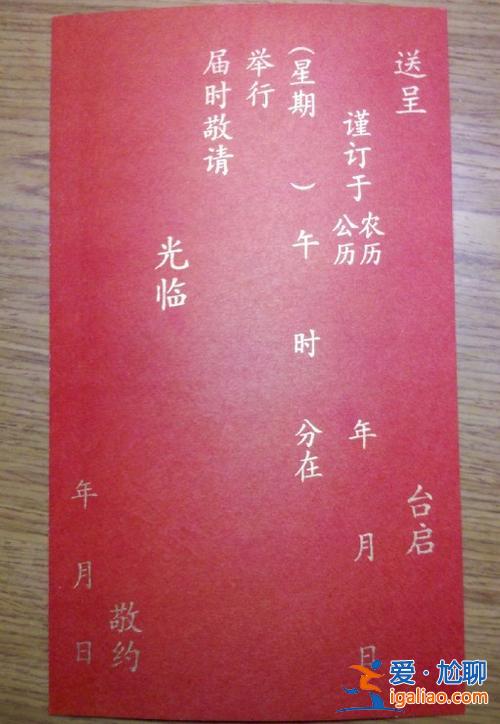 送呈 台启
谨订于 公历 农历 年 月 日
（星期 ）午 时 分在
举行
届时敬请
光临
敬约
年 月 日
爱·尬聊
igaliao.com